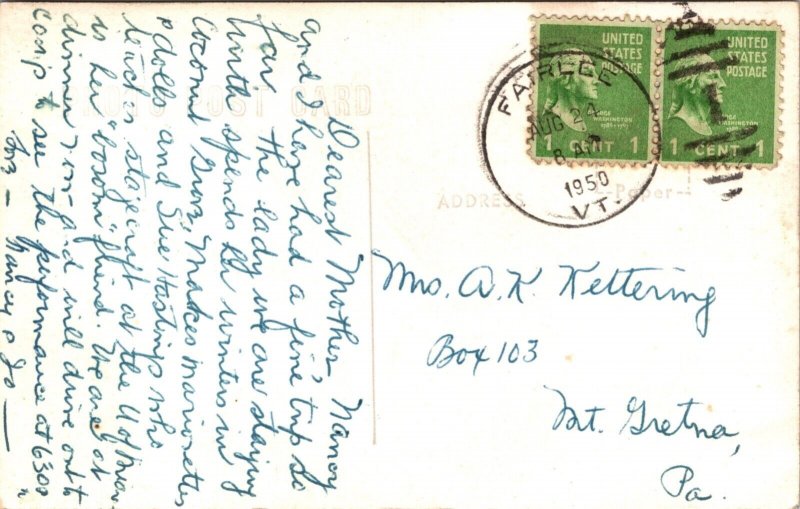 PHOTO POST CARD
ADDRESS
Paper
UNITED STATES POSTAGE
GEORGE WASHINGTON
1 CENT 1
UNITED STATES POSTAGE
1 CENT 1
FAIRLEE
AUG 24
8 AM
1950
VT.
Dearest Mother - Nancy
and I have had a fine trip so
far. The lady we are staying
with spends her winters in
Coconut Grov, Makes marionettes
& dolls and Sue Hastings who
teaches stagecraft at the U of Miami
is her "bosom" friend. We are at
dinner and will drive out to
camp to see the performance at
Love - Nancy & Jo —
Mrs. A. K. Kettering
Box 103
Mt. Gretna,
Pa.